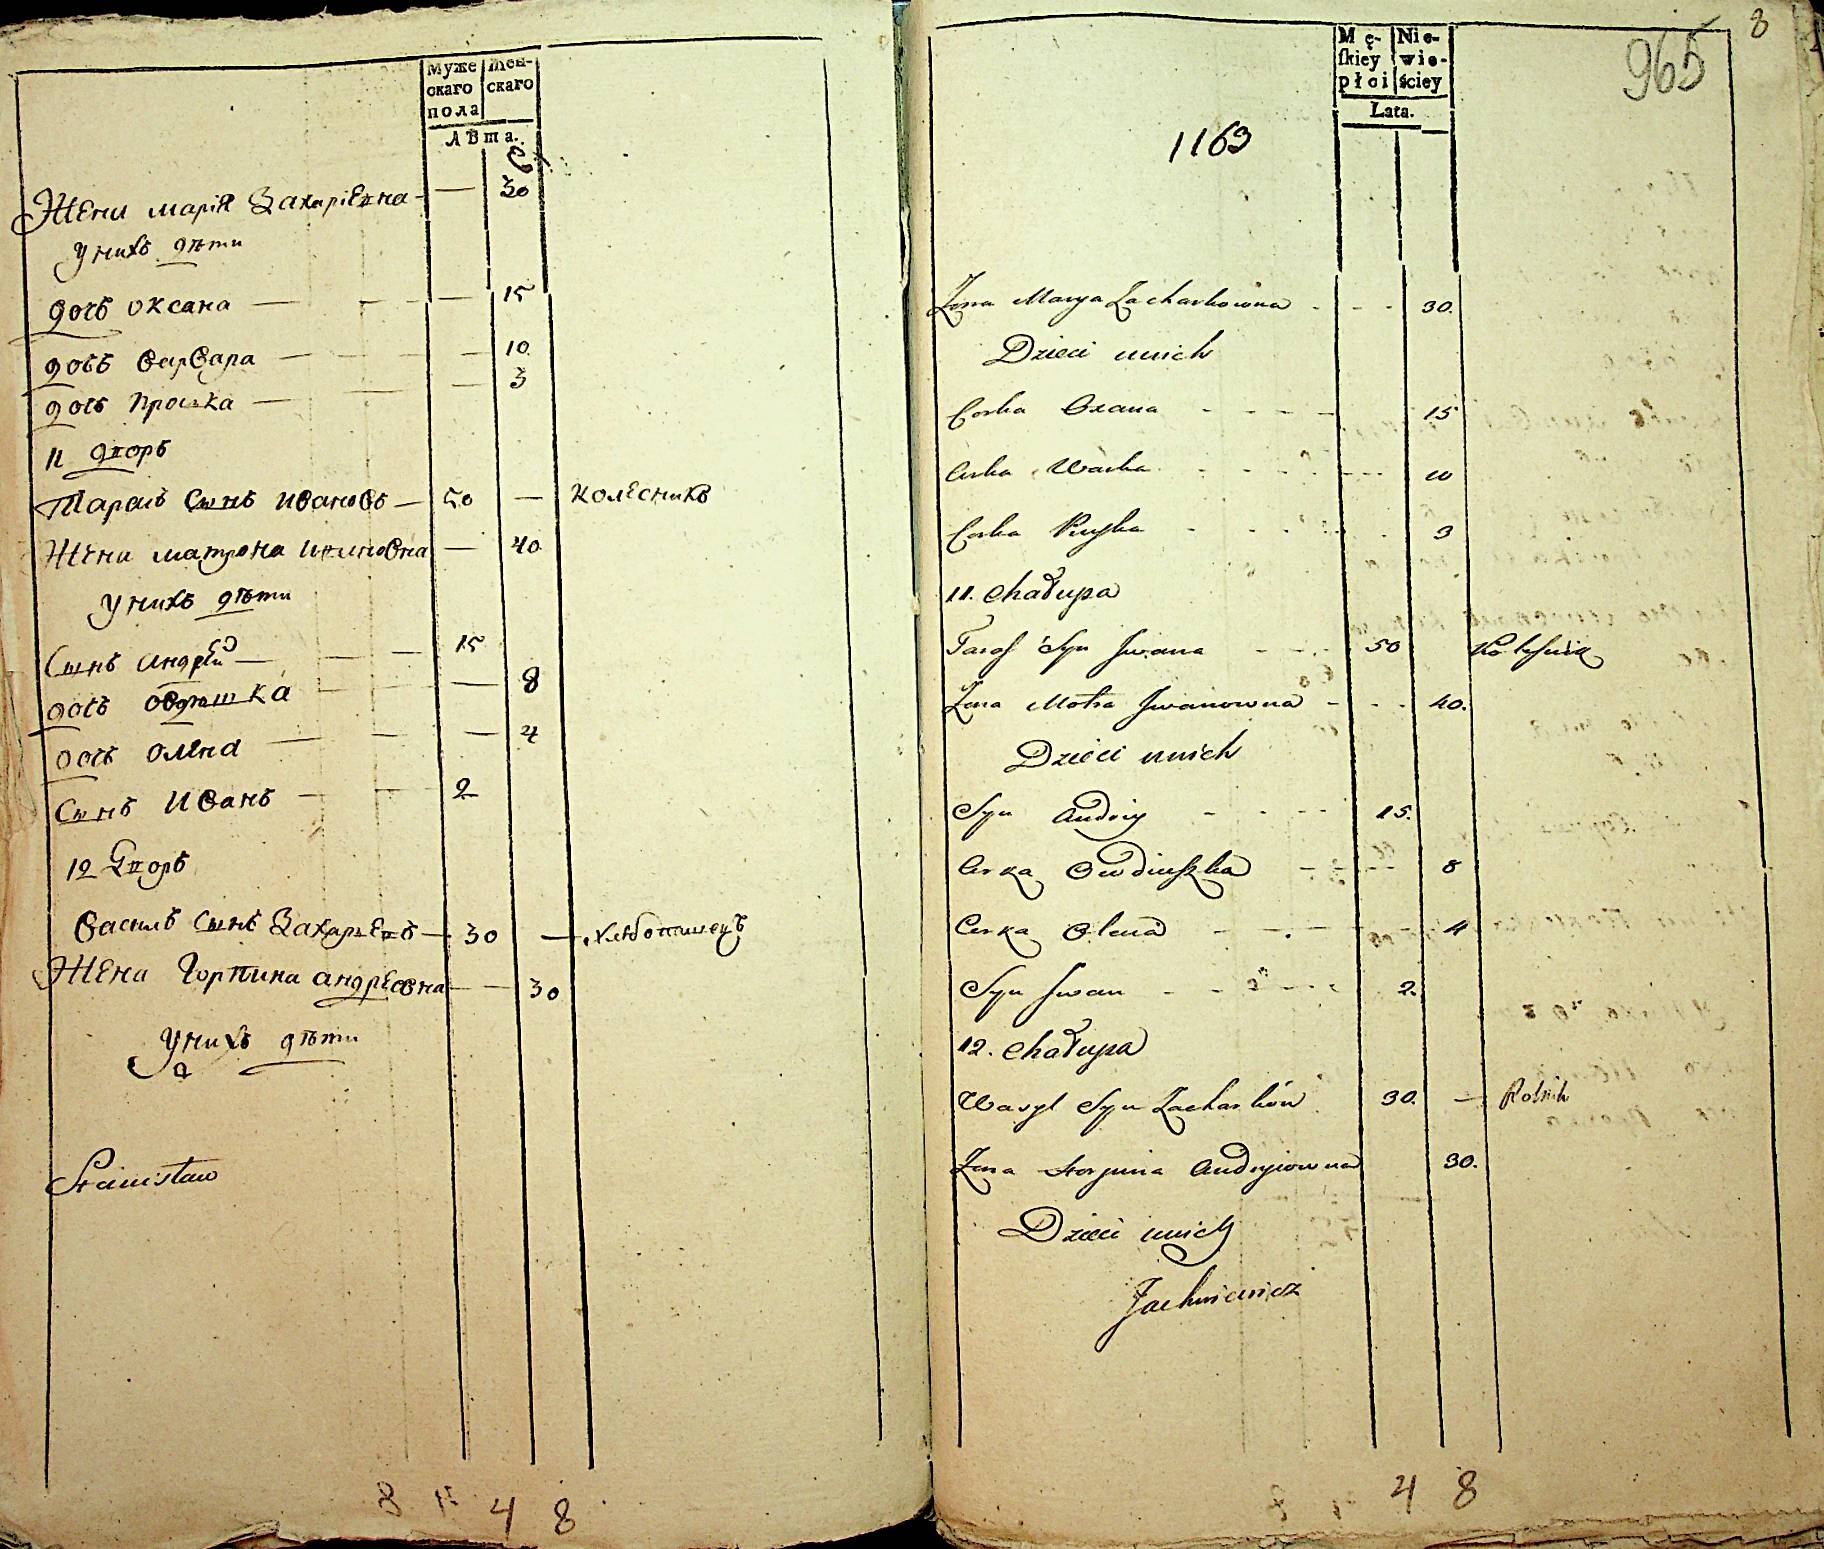 Муже скаго пола
Жен- скаго
Лѣта.
Жена Марія Захаріевна — 30
У нихъ дѣти
дочь Оксана — 15
дочь Варвара — 10
дочь Проська — 3
11 дворъ
Тарасъ сынъ Ивановъ — 50 — колесникъ
Жена Матрона Ивановна — 40
У нихъ дѣти
Сынъ Андрей — 15
дочь Овдюшка — 8
дочь Олена — 4
Сынъ Иванъ — 2
12 Дворъ
Василь сынъ Захаріевъ — 30 — хлѣбопашецъ
Жена Горпина Андреовна — 30
У нихъ дѣти
Stanisław
4 8
8
965
Mę- skiey płci
Nie- wie- ściey
Lata.
1163
Zona Marya Zacharkowna 30.
Dzieci unich
Corka Oxana 15
Corka Warka 10
Corka Pruska 3
11. Chałupa
Taras Syn Iwana 50 Kolesnik
Zona Motra Iwanowna 40.
Dzieci unich
Syn Andriy 15.
Corka Owdiuszka 8
Corka Olena 4
Syn Iwan 2.
12. Chałupa
Wasyl Syn Zacharkow 30. — Rolnik
Zona Horpina Andryiowna 30.
Dzieci unich
Jachniewicz
4 8